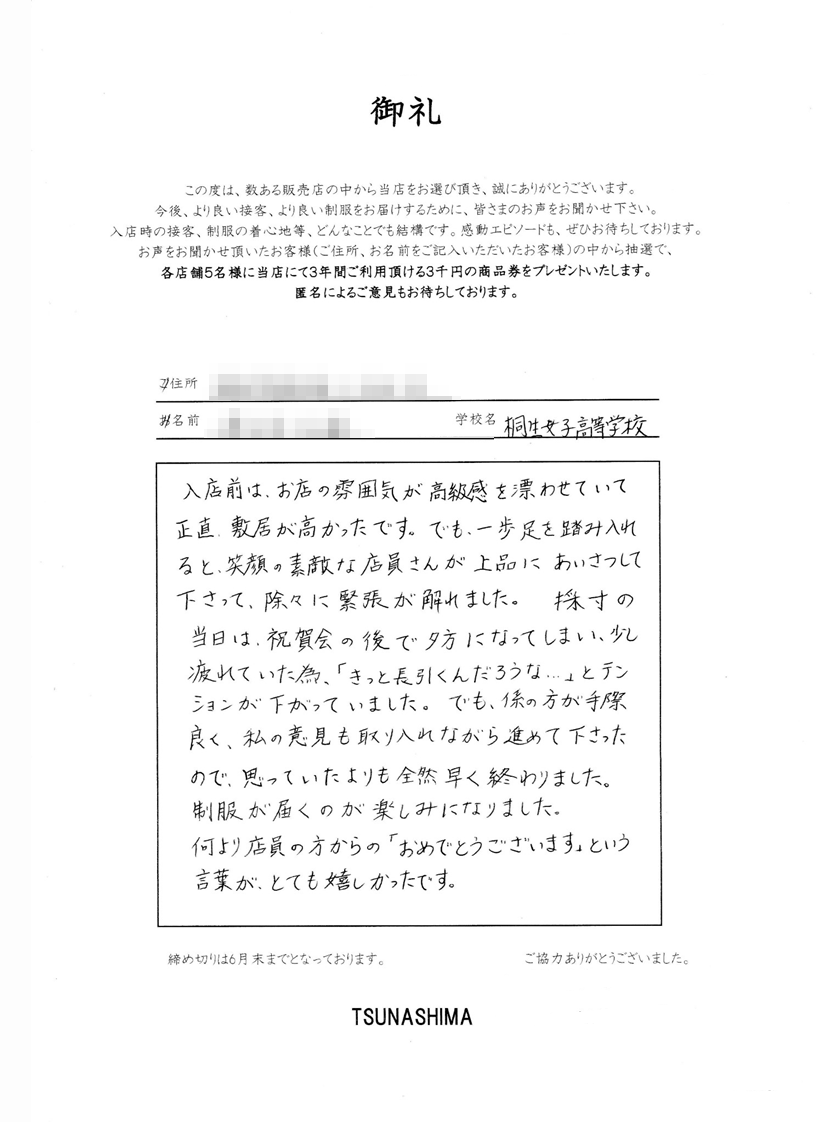 御礼
この度は、数ある販売店の中から当店をお選び頂き、誠にありがとうございます。
今後、より良い接客、より良い制服をお届けするために、皆さまのお声をお聞かせ下さい。
入店時の接客、制服の着心地等、どんなことでも結構です。感動エピソードも、ぜひお待ちしております。
お声をお聞かせ頂いたお客様(ご住所、お名前をご記入いただいたお客様)の中から抽選で、
各店舗5名様に当店にて3年間ご利用頂ける3千円の商品券をプレゼントいたします。
匿名によるご意見もお待ちしております。
ご住所
お名前
学校名 桐生女子高等学校
入店前は、お店の雰囲気が高級感を漂わせていて
正直、敷居が高かったです。でも、一歩足を踏み入れ
ると、笑顔の素敵な店員さんが上品にあいさつして
下さって、除々に緊張が解れました。 採寸の
当日は、祝賀会の後で夕方になってしまい、少し
疲れていた為、「きっと長引くんだろうな…」とテン
ションが下がっていました。でも、係の方が手際
良く、私の意見も取り入れながら進めて下さった
ので、思っていたよりも全然早く終わりました。
制服が届くのが楽しみになりました。
何より店員の方からの「おめでとうございます」という
言葉が、とても嬉しかったです。
締め切りは6月末までとなっております。
ご協力ありがとうございました。
TSUNASHIMA